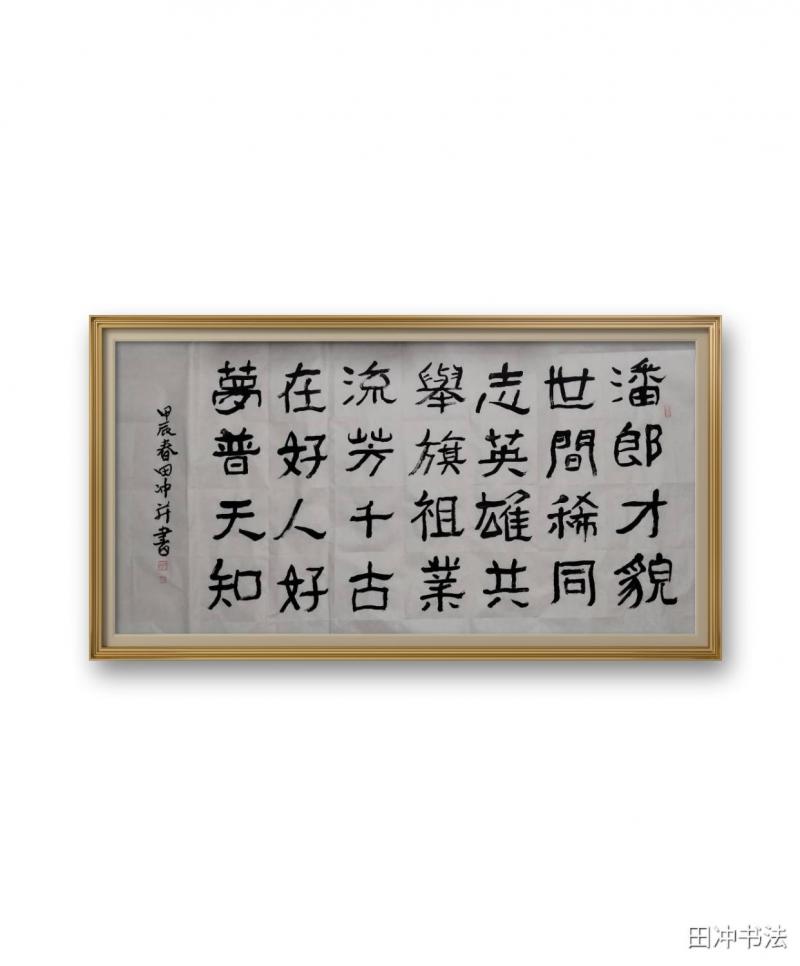 潘郎才貌
世間稀同
志英雄共
舉旗祖業
流芳千古
在好人好
夢普天知
甲辰春田冲并書
田冲书法